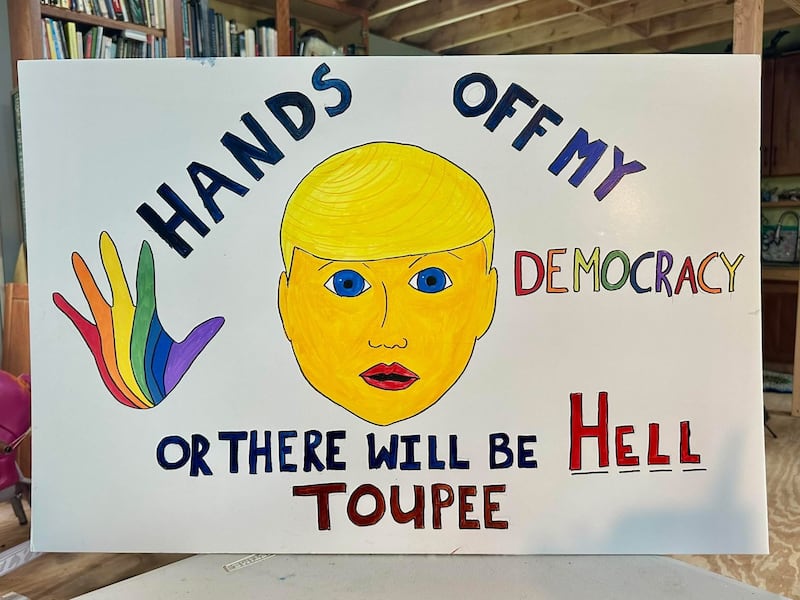 HANDS OFF MY
DEMOCRACY
OR THERE WILL BE HELL
TOUPEE